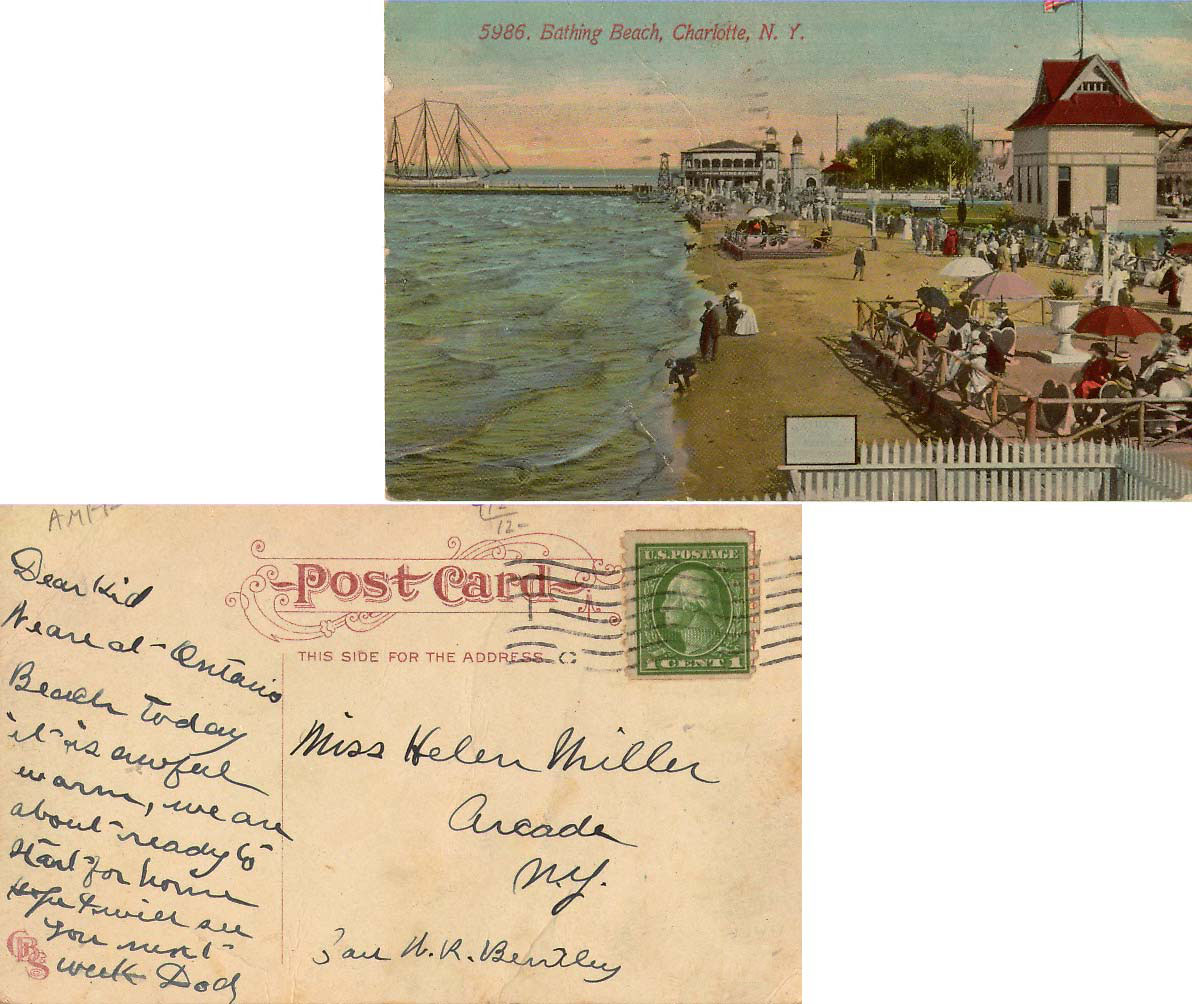 5986. Bathing Beach, Charlotte, N. Y.
AMH
12-
Post Card
THIS SIDE FOR THE ADDRESS
U.S. POSTAGE
1 CENT 1
Dear Kid
We are at Ontario
Beach Today
it is awful
warm, we are
about ready to
start for home
hope I will see
you next
week Dod
Miss Helen Miller
Arcade
N.Y.
W. R. Bentley